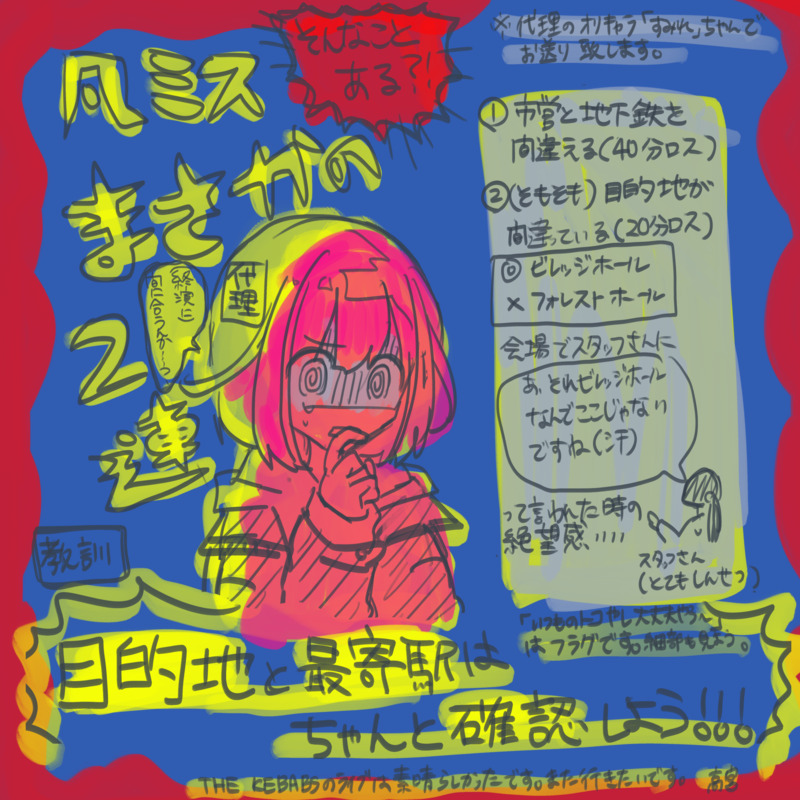 そんなこと
ある?!
※代理のオリキャラ「すみれ」ちゃんで
お送り致します。
凡ミス
まさかの
2
連
代理
終演に
間に合うんか…っ
①市営と地下鉄を
間違える(40分ロス)
②(ともそも)目的地が
間違っている(20分ロス)
◎ ビレッジホール
× フォレストホール
会場でスタッフさんに
あ、それビレッジホール
なんでここじゃない
ですね(汗)
って言われた時の
絶望感....
スタッフさん
(とてもしんせつ)
教訓
「いつものトコやし大丈夫やろ〜」
はフラグです。細部も見よう。
目的地と最寄駅は
ちゃんと確認しよう!!!
THE KEBABSのライブは素晴らしかったです。また行きたいです。 高宮